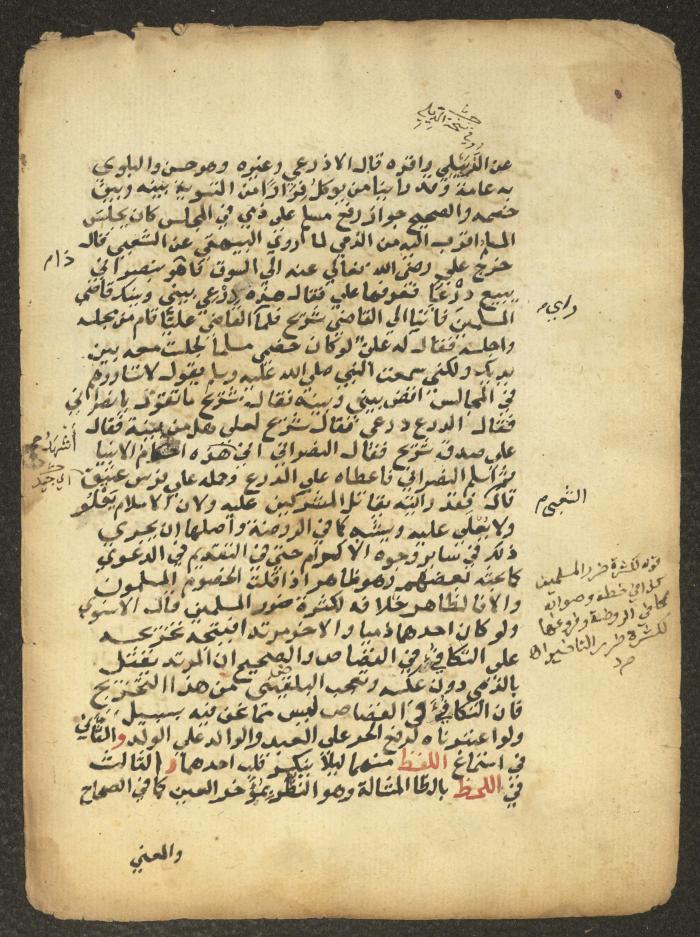 عن الزبيلي واقره قال الاذرعي وغيره وهو حسن والبلوى
به عامة وقد راينا من يوكل فرارا من التسوية بينه وبين
خصمه والصحيح جواز رفع مسلم على ذمي في المجلس كان يجلس
المسلم اقرب اليه من الذمي لما روى البيهقي عن الشعبي قال
خرج علي رضي الله تعالى عنه الى السوق فاذا هو بنصراني
يبيع درعا فعرفها علي فقال هذه درعي بيني وبينك قاضي
المسلمين فاتيا الى القاضي شريح فلما القاضي عليا قام من مجلسه
واجلسه فقال له علي لو كان خصمي مسلما لجلست معه بين
يديك ولكني سمعت النبي صلى الله عليه وسلم يقول لا تساووهم
في المجالس اقض بيني وبينه فقال شريح ما تقول يا نصراني
فقال الدرع درعي فقال شريح لعلي هل من بينة فقال
علي صدق شريح فقال النصراني اني هذه احكام الانبيا
ثم اسلم النصراني فاعطاه علي الدرع وحمله على فرس عتيق
قال فقد رايته يقاتل المشركين عليه ولان الاسلام يعلو
ولا يعلى عليه ويشبه كما في الروضة واصلها ان يجري
ذلك في سائر وجوه الاكرام حتى في التقديم في الدعوى
كما بحثه بعضهم وهو ظاهر اذا قلت الخصوم المسلمون
والا فالظاهر خلافه لكثرة ضرر المسلمين قال الاسنوي
ولو كان احدهما ذميا والاخر مرتدا فيتجه تخريجه
على التكافؤ في القصاص والصحيح ان المرتد يقتل
بالذمي دون عكسه وتعجب البلقيني من هذا التخريج
فان التكافؤ في القصاص ليس مما نحن فيه بسبيل
ولو اعتبرناه لرفع الحر على العبد والوالد على الولد والثاني
في استماع اللفظ منهما ليلا ينكسر قلب احدهما والثالث
في اللحظ بالظا المشالة وهو النظر بمؤخر العين كما في الصحاح
والمعنى
راى م
الشعبي م
قوله لكثرة ضرر المسلمين
كذا في خطه وصوابه
كما في الروضة وفروعها
لكثرة ضرر التاخير اه
م د